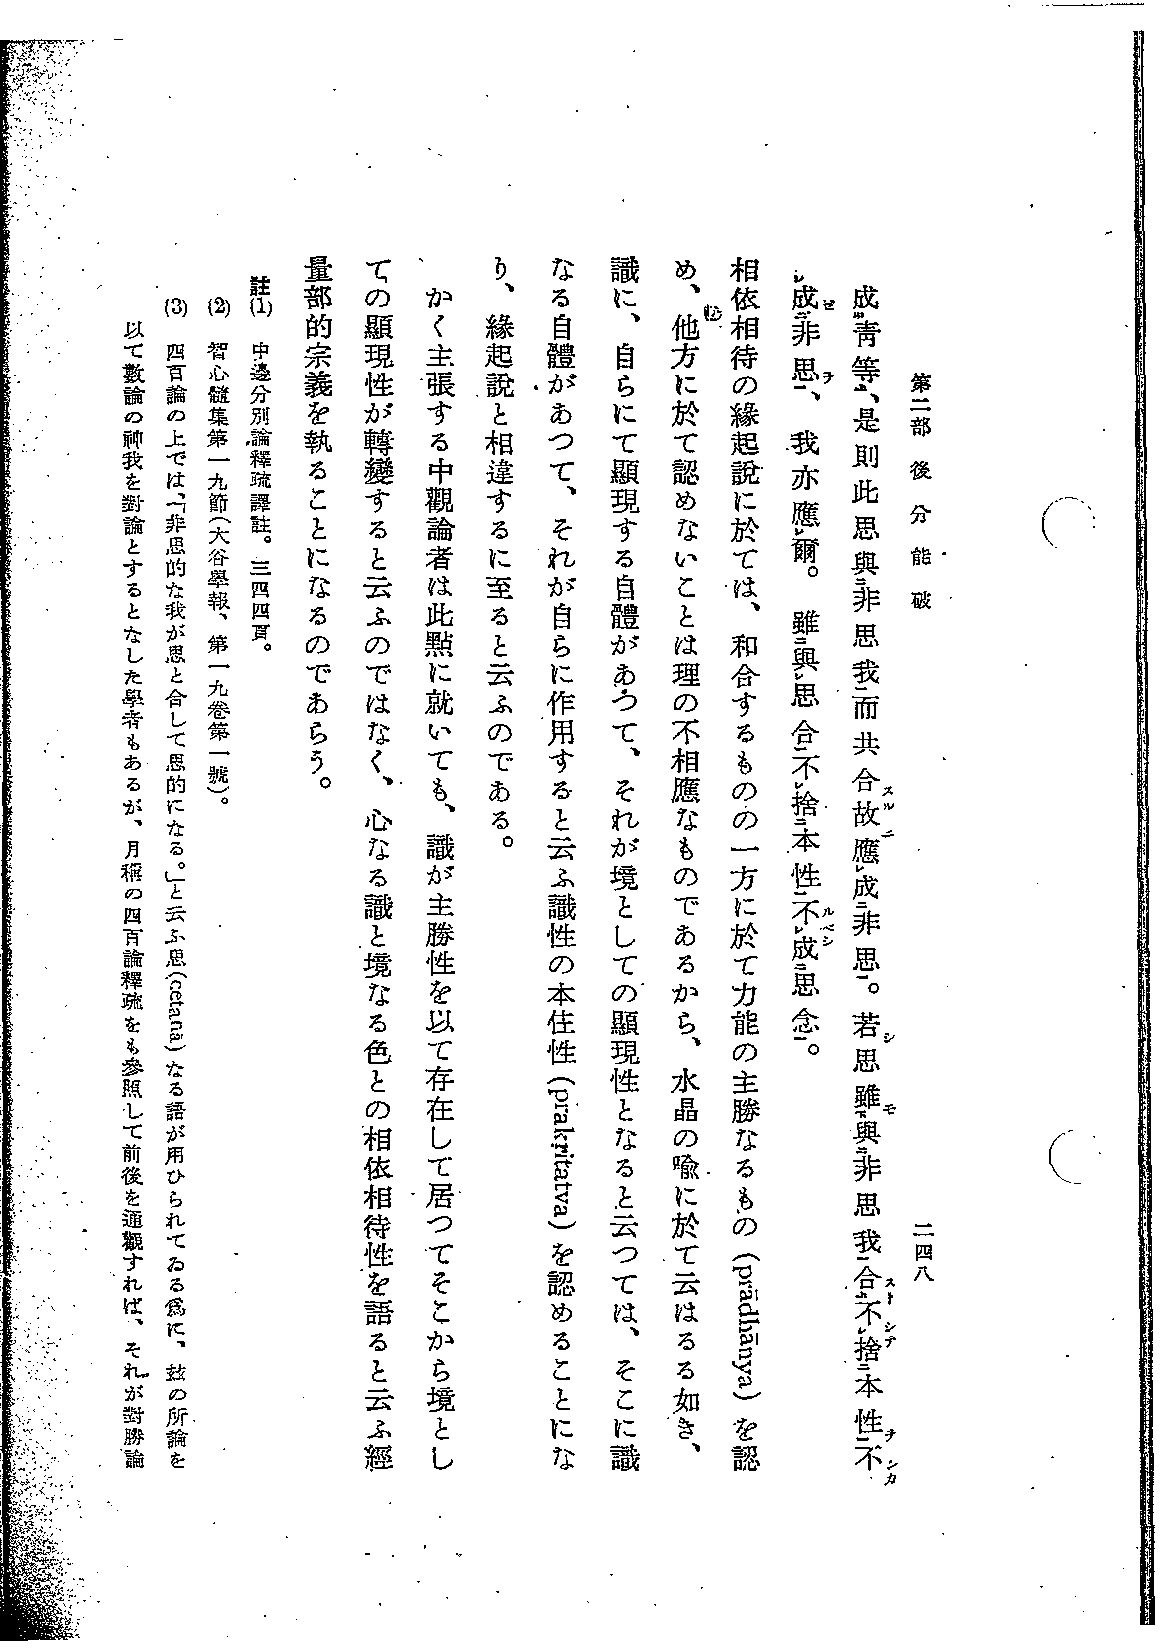 第二部　後分能破　　二四八
成青等、是則此思與非思我而共合故應成非思。若思雖與非思我合不捨本性不
成非思、我亦應爾。雖與思合不捨本性不成思念。
相依相待の緣起說に於ては、和合するものの一方に於て力能の主勝なるもの(prādhānya)を認
め、他方に於て認めないことは理の不相應なものであるから、水晶の喩に於て云はるる如き、
識に、自らにて顯現する自體があつて、それが境としての顯現性となると云つては、そこに識
なる自體があつて、それが自らに作用すると云ふ識性の本住性(prakritatva)を認めることにな
り、緣起說と相違するに至ると云ふのである。
かく主張する中觀論者は此點に就いても、識が主勝性を以て存在して居つてそこから境とし
ての顯現性が轉變すると云ふのではなく、心なる識と境なる色との相依相待性を語ると云ふ經
量部的宗義を執ることになるのであらう。
註(1)　中邊分別論釋疏譯註。三四四頁。
(2)　智心髓集第一九節(大谷學報、第一九卷第一號)。
(3)　四百論の上では、「非思的な我が思と合して思的になる。」と云ふ思(cetanā)なる語が用ひられてゐる爲に、玆の所論を
以て數論の神我を對論とするとなした學者もあるが、月稱の四百論釋疏をも參照して前後を通觀すれば、それが對勝論